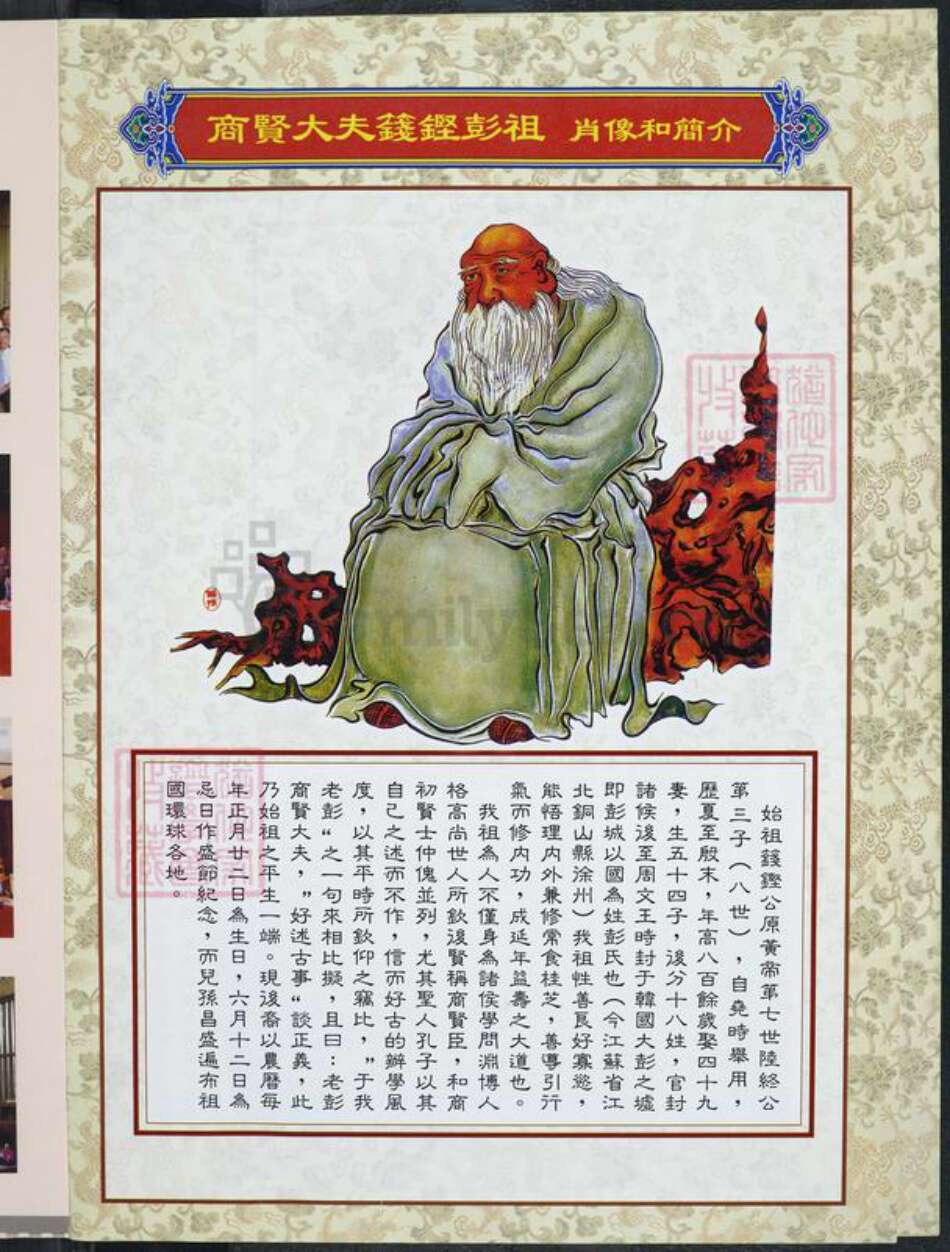 商賢大夫籛鏗彭祖 肖像和簡介
始祖籛鏗公原黃帝第七世陸終公
第三子（八世），自堯時舉用，
歷夏至殷末，年高八百餘歲娶四十九
妻，生五十四子，後分十八姓，官封
諸侯後至周文王時封于韓國大彭之墟
即彭城以國為姓彭氏也（今江蘇省江
北銅山縣涂州）我祖性善良好寡慾，
能悟理內外兼修常食桂芝，善導引行
氣而修內功，成延年益壽之大道也。
我祖為人不僅身為諸侯學問淵博人
格高尚世人所欽後賢稱商賢臣，和商
初賢士仲傀並列，尤其聖人孔子以其
自己之述而不作，信而好古的辦學風
度，以其平時所欽仰之竊比，”于我
老彭“之一句來相比擬，且曰：老彭
商賢大夫，”好述古事“談正義，此
乃始祖之平生一端。現後裔以農曆每
年正月廿二日為生日，六月十二日為
忌日作盛節紀念，而兒孫昌盛遍布祖
國環球各地。